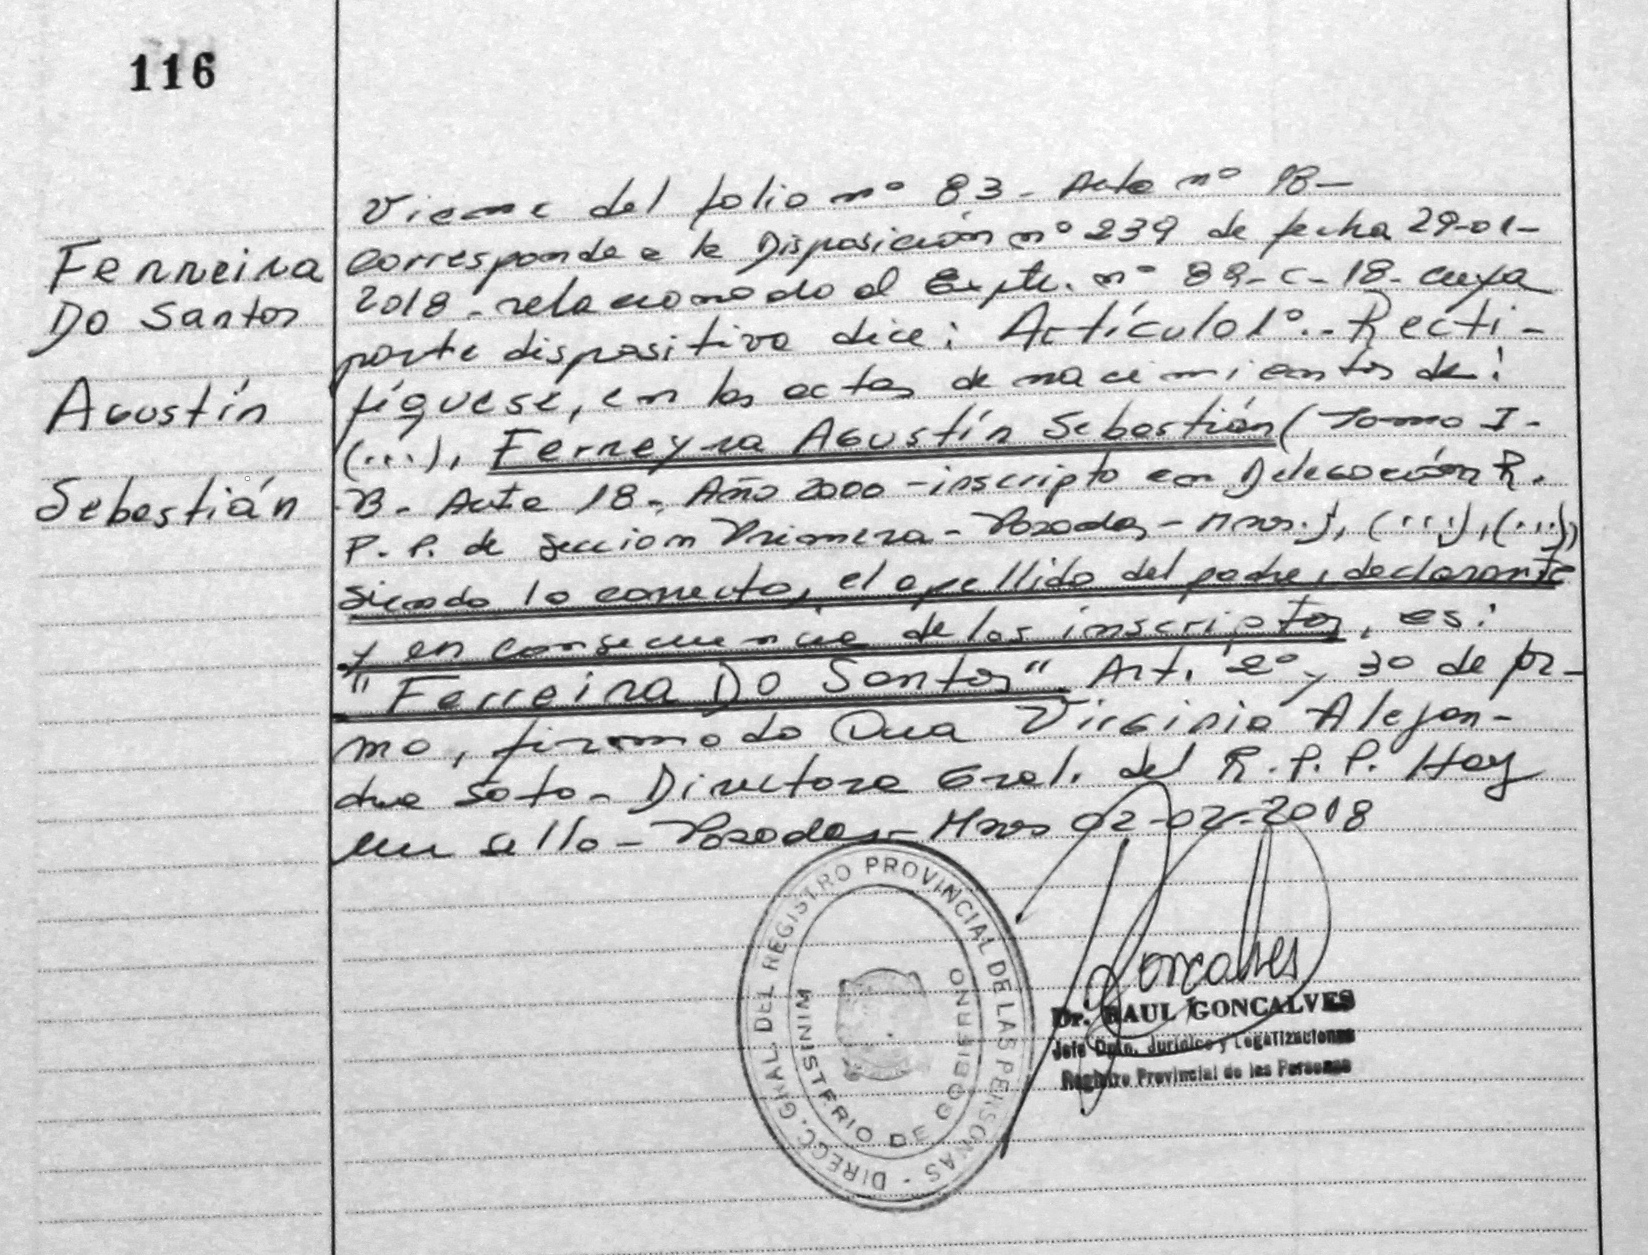 116
Ferreira
Do Santos
Agustín
Sebastián
Viene del folio nº 83 - Acta nº 18 -
Corresponde a la Disposición nº 239 de fecha 29-01-
2018 - relacionado al Expte. nº 89-C-18- cuya
parte dispositiva dice: Artículo 1º.- Recti-
fíquese, en las actas de nacimientos de:
(...), Ferreyra Agustín Sebastián (Tomo I-
B- Acta 18- Año 2000 - inscripto en Delegación R.
P.P. de Sección Primera - Posadas - Mnes.), (...), (...),
siendo lo correcto, el apellido del padre, declarante
y en consecuencia de los inscriptos, es:
"Ferreira Do Santos" Art. 2º y 3º de for-
ma, firmado Dra Virginia Alejan-
dra Soto - Directora Gral. del R.P.P. Hay
un sello - Posadas - Mnes 02-02-2018
DIRECC. GRAL. DEL REGISTRO PROVINCIAL DE LAS PERSONAS -
MINISTERIO DE GOBIERNO
Goncalves
Dr. RAUL GONCALVES
Jefe Dpto. Jurídico y Legalizaciones
Registro Provincial de las Personas